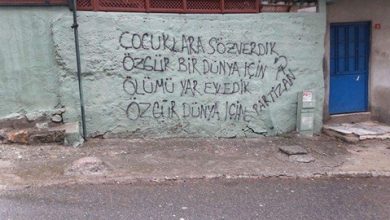 ÇOCUKLARA SÖZVERDİK
ÖZGÜR BİR DÜNYA İÇİN
ÖLÜMÜ YAR EYLEDİK
ÖZGÜR DÜNYA İÇİN
PARTİZAN